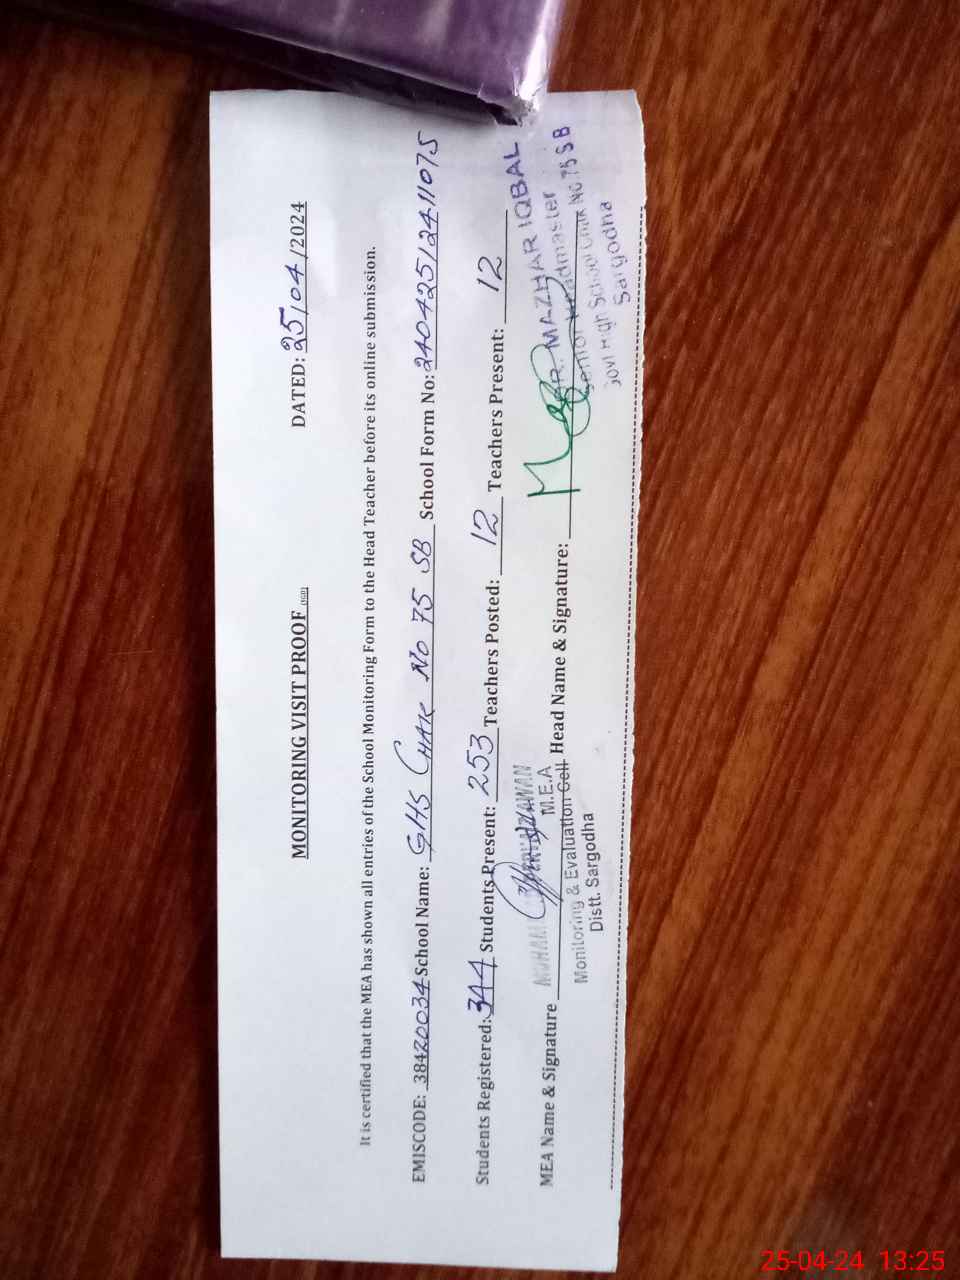 MONITORING VISIT PROOF
DATED: 25/04/2024
It is certified that the MEA has shown all entries of the School Monitoring Form to the Head Teacher before its online submission.
EMISCODE: 38420034 School Name: GHS CHAK No 75 SB School Form No: 24042512411075
Students Registered: 344 Students Present: 253 Teachers Posted: 12 Teachers Present: 12
MEA Name & Signature Head Name & Signature:
M.E.A
Monitoring & Evaluation Cell
Distt. Sargodha
MAZHAR IQBAL
Senior Headmaster
Govt High School Chak No 75 SB
Sargodha
25-04-24 13:25